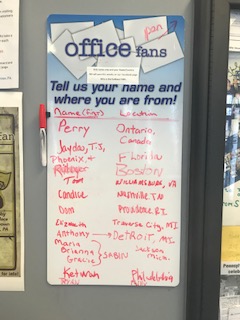 pan
office fans
Tell us your name and
where you are from!
Name (First) Location
Perry Ontario,
Canada
Jayday, T.J,
Phoenix, + Florida
BOSTON
Tom Williamsburg, VA
Candice Nashville, TN
Dom Providence RI
Elizabeth Traverse City, MI.
Anthony → DETROIT, MI.
Maria
Brianna SABIN Jackson
Gracie Mich.
Keturah Philadelphia
RYAN